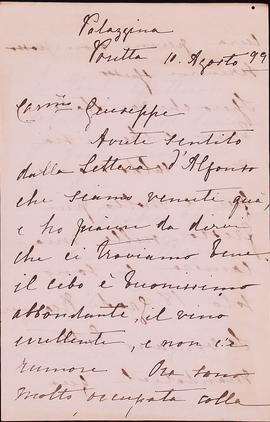 Palazzina
Poretta 10. Agosto 99
Carmo Giuseppe
Avete sentito
dalla Lettera d'Alfonso
che siamo venute quà,
e ho piacere da dirvi
che ci troviamo bene
il cibo è buonissimo
abbondante, il vino
eccellente, e non c'è
rumore Ora sono
molto occupata colla